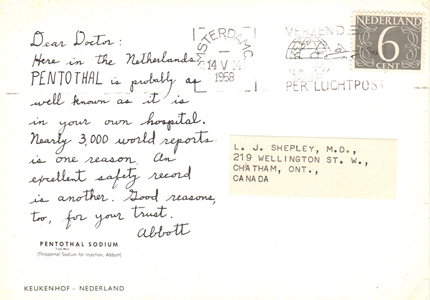 Dear Doctor:
Here in the Netherlands,
PENTOTHAL is probably as
well known as it is
in your own hospital.
Nearly 3,000 world reports
is one reason. An
excellent safety record
is another. Good reasons,
too, for your trust.
Abbott
PENTOTHAL SODIUM
(Thiopental Sodium for Injection, Abbott)
KEUKENHOF - NEDERLAND
AMSTERDAM
14 V
1958
PER LUCHTPOST
NEDERLAND
6
CENT
L. J. SHEPLEY, M.D.,
219 WELLINGTON ST. W.,
CHATHAM, ONT.,
CANADA